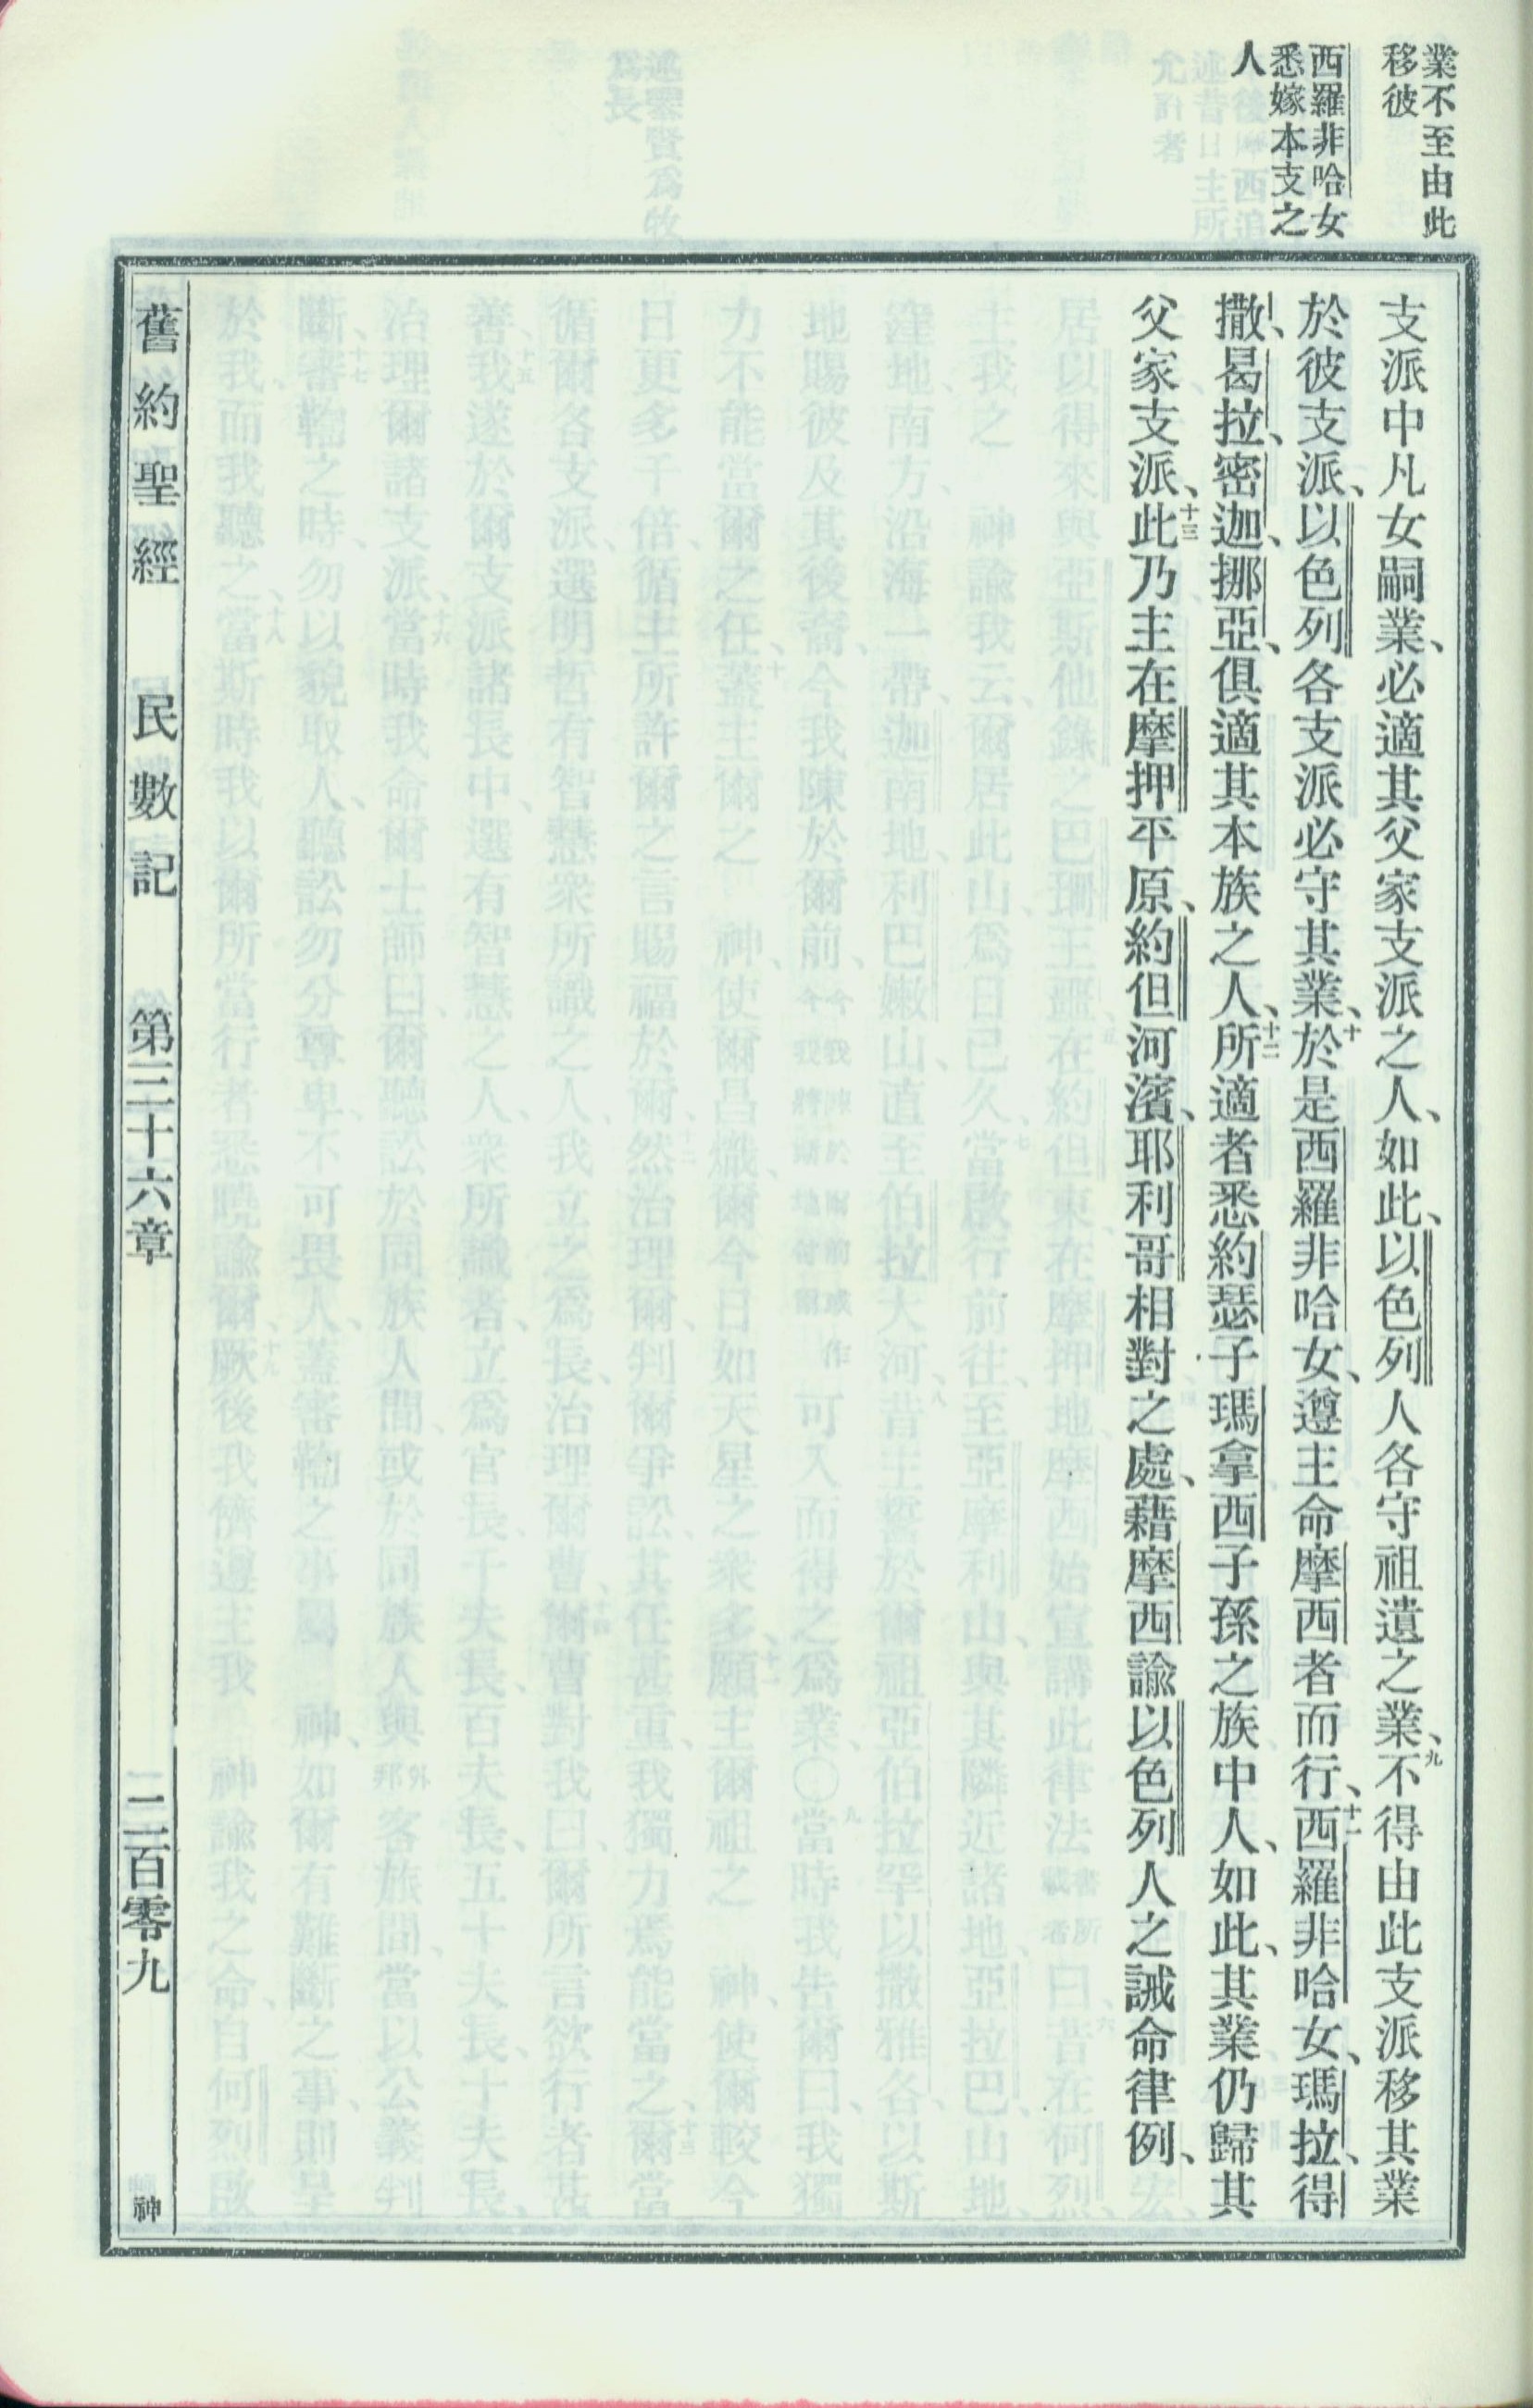 業不至由此
移彼
西羅非哈女
悉嫁本支之
人
支派中凡女嗣業、必適其父家支派之人、如此、以色列人各守祖遺之業、九不得由此支派移其業
於彼支派、以色列各支派必守其業、十於是西羅非哈女、遵主命摩西者而行、十一西羅非哈女、瑪拉、得
撒、曷拉、密迦、挪亞、俱適其本族之人、十二所適者悉約瑟子瑪拿西子孫之族中人、如此、其業仍歸其
父家支派、十三此乃主在摩押平原、約但河濱、耶利哥相對之處、藉摩西諭以色列人之誡命律例、
舊約聖經 民數記 第三十六章 二百零九 神